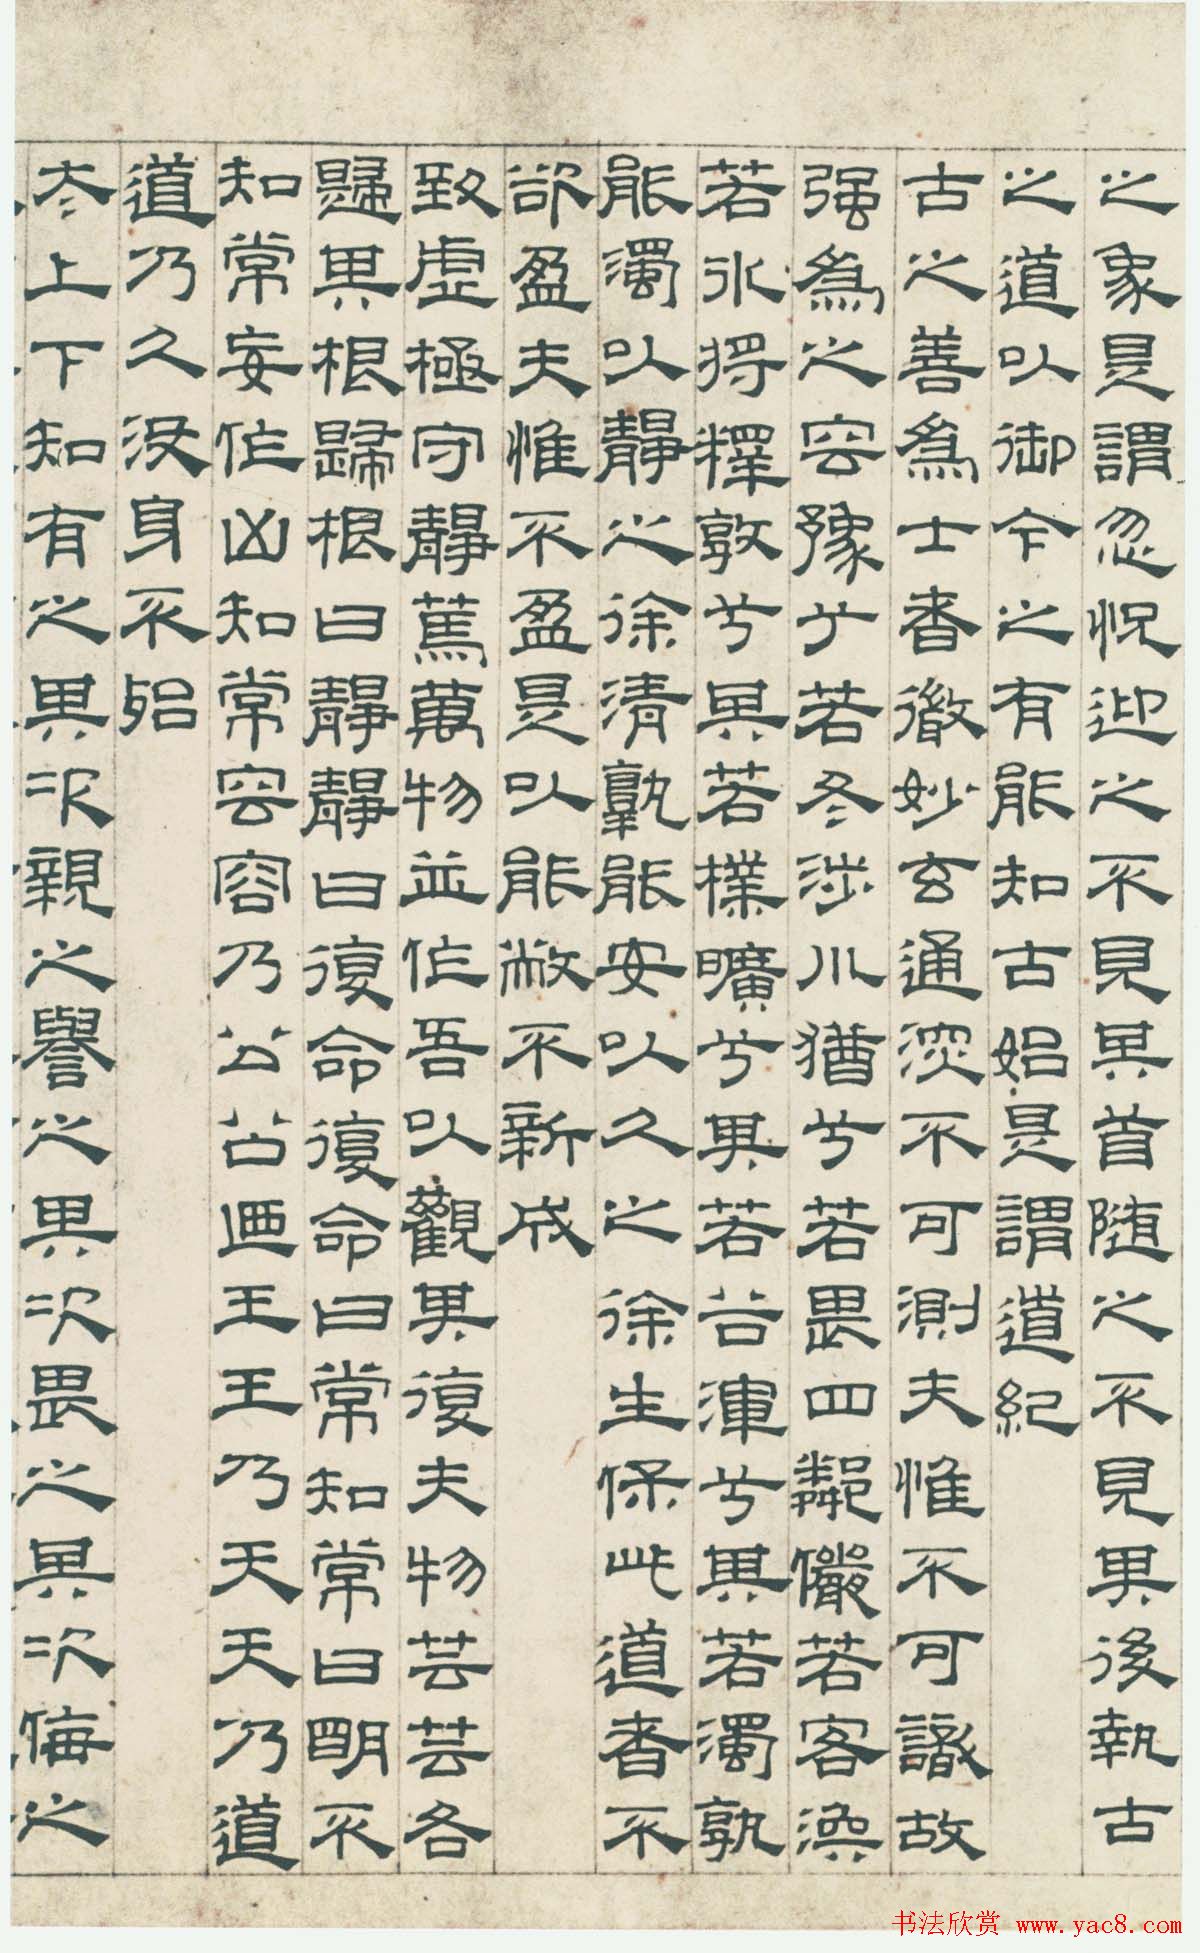 之象是謂忽怳迎之不見其首随之不見其後執古
之道以御今之有能知古始是謂道紀
古之善為士者微妙玄通深不可測夫惟不可識故
强為之容豫兮若冬涉川猶兮若畏四鄰儼若客渙
若冰將釋敦兮其若樸曠兮其若谷渾兮其若濁孰
能濁以靜之徐清孰能安以久之徐生保此道者不
欲盈夫惟不盈是以能敝不新成
致虛極守靜篤萬物並作吾以觀其復夫物芸芸各
歸其根歸根曰靜靜曰復命復命曰常知常曰明不
知常妄作凶知常容容乃公公迺王王乃天天乃道
道乃久沒身不殆
太上下知有之其次親之譽之其次畏之其次侮之
书法欣赏 www.yac8.com